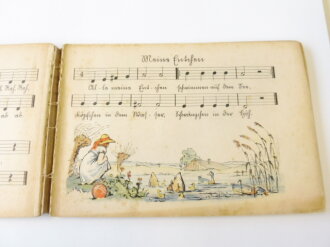 Meine Entchen
Al-le meine Ent-chen schwimmen auf dem See,
Köpfchen in dem Was-ser, Schwänzchen in der Höh.